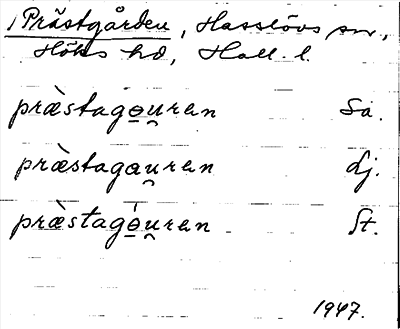 1 Prästgården, Hasslövs sn,
Höks hd, Hall. l.
præ̀stago̲u̯ran Sa.
præ̀stagau̯ran Lj.
præ̀stagó̲u̯ran St.
1947.